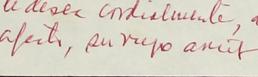 le desea cordialmente,
afecto, su viejo amigo